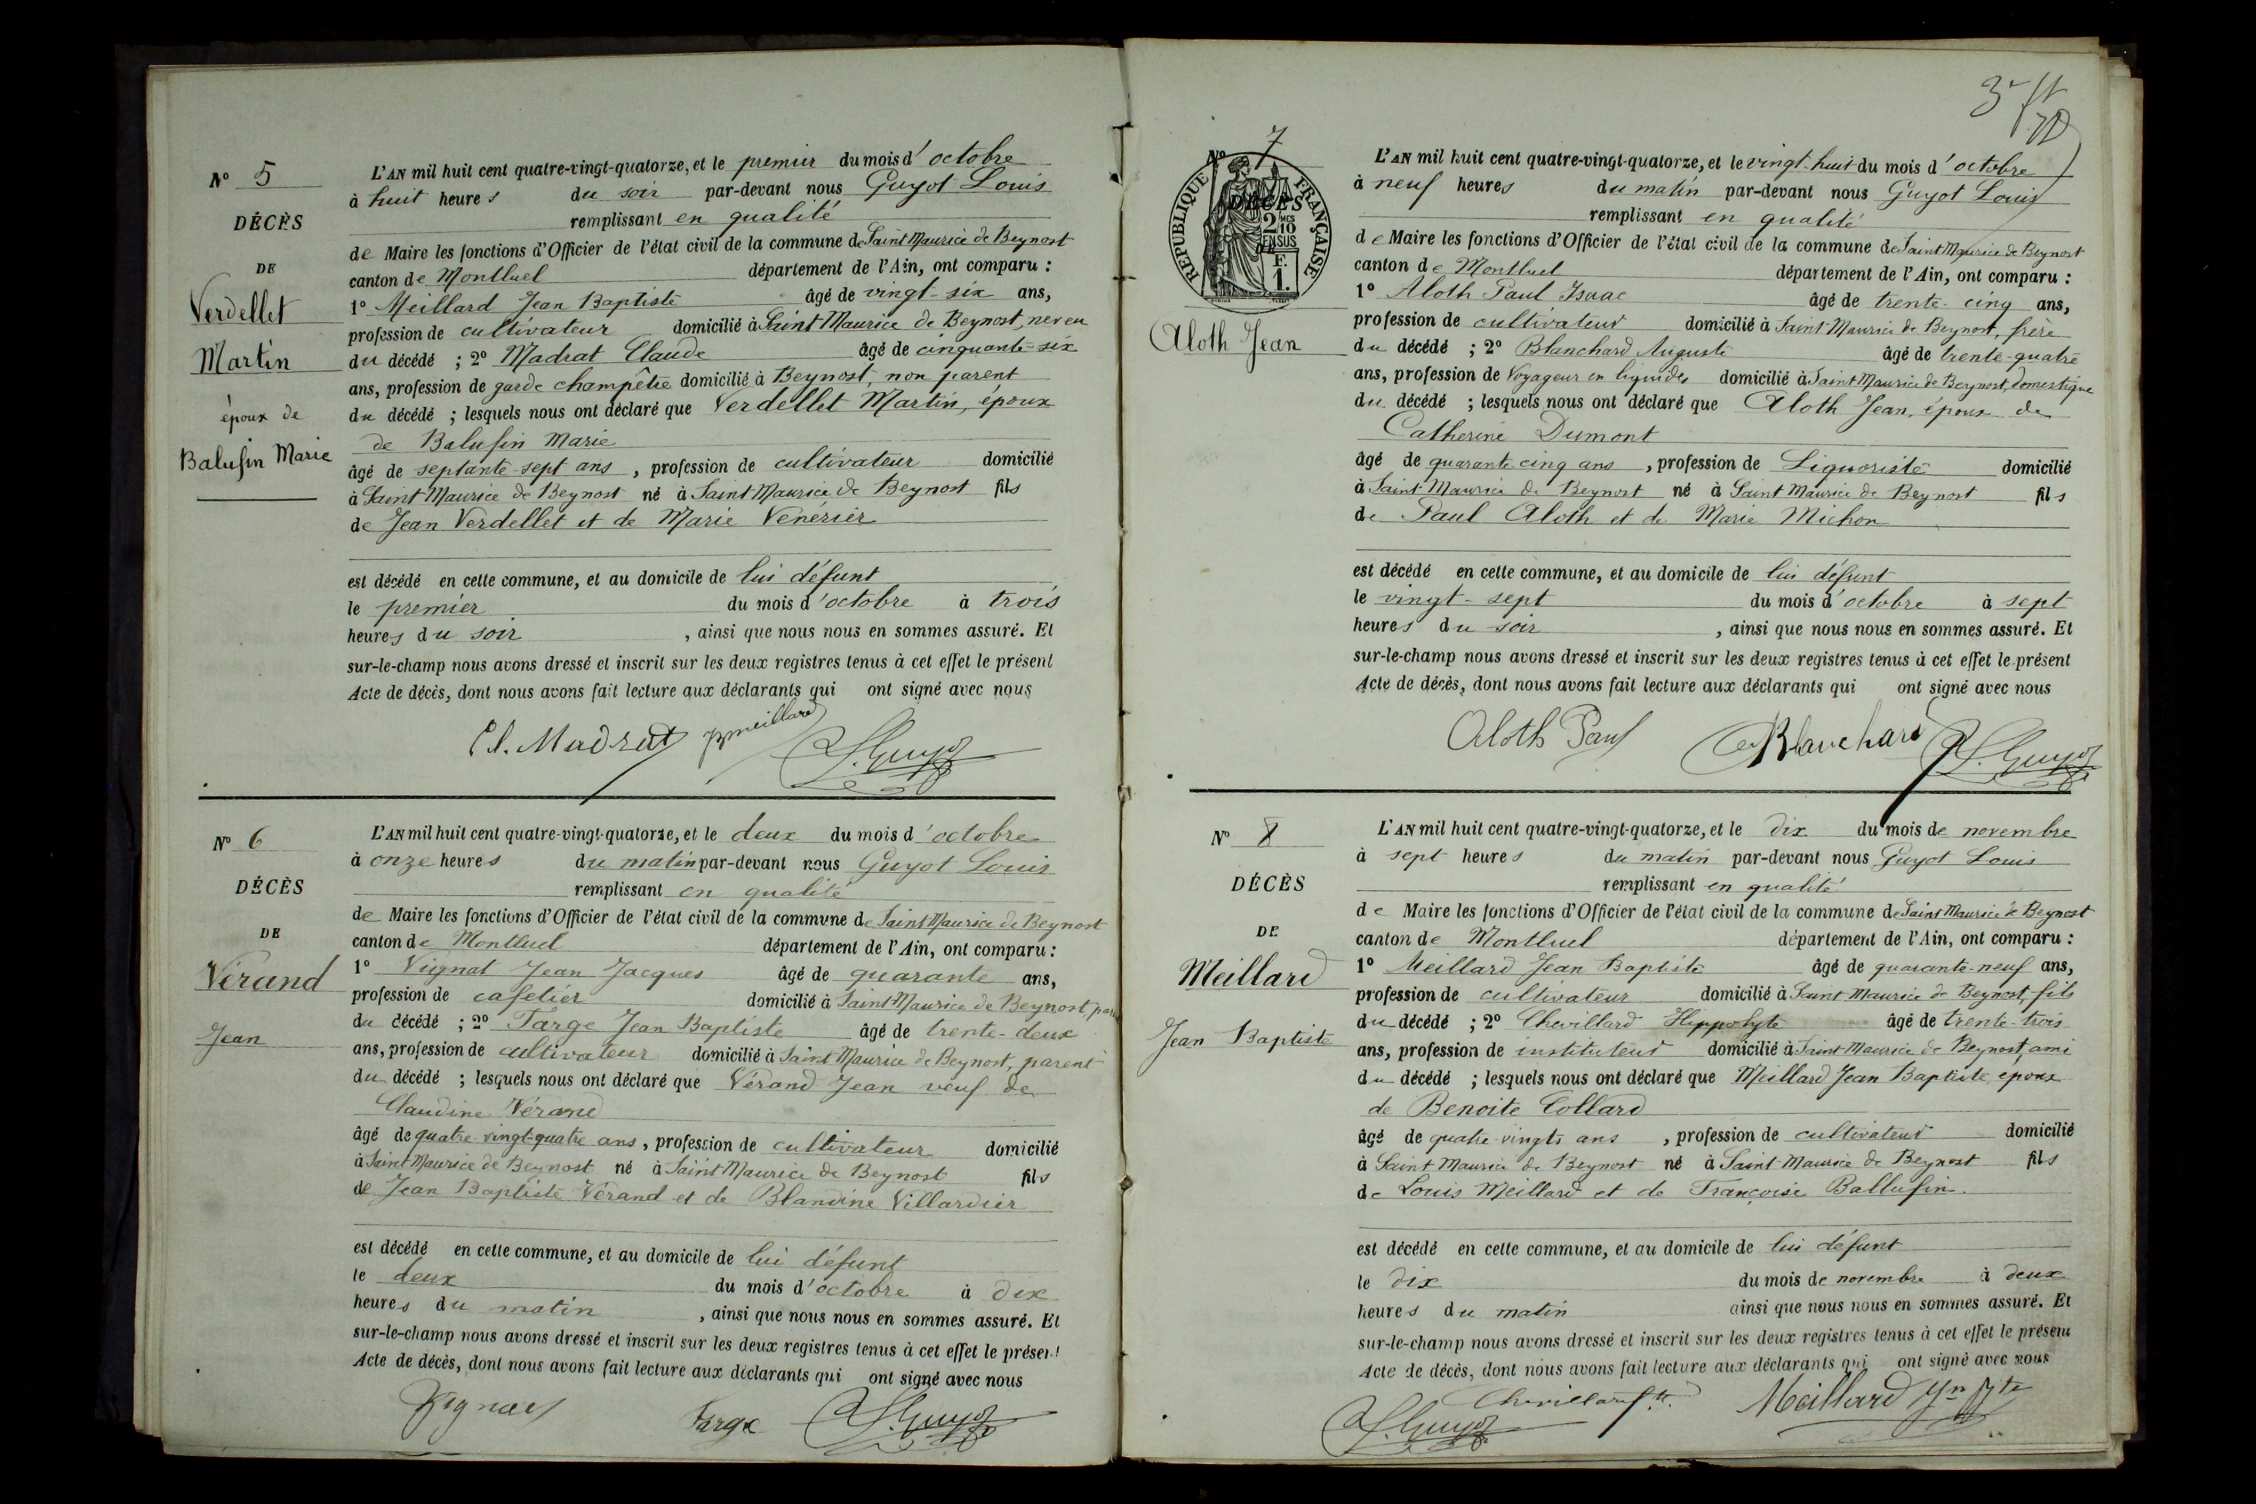 Nº 5
DÉCÈS
DE
Verdellet
Martin
époux de
Balufin Marie
L'AN mil huit cent quatre-vingt-quatorze, et le premier du mois d'octobre
à huit heures du soir par-devant nous Guyot Louis
remplissant en qualité
de Maire les fonctions d'Officier de l'état civil de la commune de Saint Maurice de Beynost
canton de Montluel département de l'Ain, ont comparu :
1º Meillard Jean Baptiste âgé de vingt-six ans,
profession de cultivateur domicilié à Saint Maurice de Beynost, neveu
du décédé ; 2º Madrat Claude âgé de cinquante-six
ans, profession de garde champêtre domicilié à Beynost, non parent
du décédé ; lesquels nous ont déclaré que Verdellet Martin, époux
de Balufin Marie
âgé de septante-sept ans, profession de cultivateur domicilié
à Saint Maurice de Beynost né à Saint Maurice de Beynost fils
de Jean Verdellet et de Marie Venérier
est décédé en cette commune, et au domicile de lui défunt
le premier du mois d'octobre à trois
heures du soir, ainsi que nous nous en sommes assuré. Et
sur-le-champ nous avons dressé et inscrit sur les deux registres tenus à cet effet le présent
Acte de décès, dont nous avons fait lecture aux déclarants qui ont signé avec nous
Cl. Madrat JB Meillard L. Guyot
Nº 6
DÉCÈS
DE
Vérand
Jean
L'AN mil huit cent quatre-vingt-quatorze, et le deux du mois d'octobre
à onze heures du matin par-devant nous Guyot Louis
remplissant en qualité
de Maire les fonctions d'Officier de l'état civil de la commune de Saint Maurice de Beynost
canton de Montluel département de l'Ain, ont comparu :
1º Vignat Jean Jacques âgé de quarante ans,
profession de cafetier domicilié à Saint Maurice de Beynost,
du décédé ; 2º Farge Jean Baptiste âgé de trente-deux
ans, profession de cultivateur domicilié à Saint Maurice de Beynost, parent
du décédé ; lesquels nous ont déclaré que Vérand Jean veuf de
Claudine Vérand
âgé de quatre-vingt-quatre ans, profession de cultivateur domicilié
à Saint Maurice de Beynost né à Saint Maurice de Beynost fils
de Jean Baptiste Vérand et de Blandine Villardier
est décédé en cette commune, et au domicile de lui défunt
le deux du mois d'octobre à dix
heures du matin, ainsi que nous nous en sommes assuré. Et
sur-le-champ nous avons dressé et inscrit sur les deux registres tenus à cet effet le présent
Acte de décès, dont nous avons fait lecture aux déclarants qui ont signé avec nous
Vignat Farge L. Guyot
Nº 7
RÉPUBLIQUE FRANÇAISE
DÉCÈS
2 MES
10
EN SUS
F.
1.
Aloth Jean
L'AN mil huit cent quatre-vingt-quatorze, et le vingt-huit du mois d'octobre
à neuf heures du matin par-devant nous Guyot Louis
remplissant en qualité
de Maire les fonctions d'Officier de l'état civil de la commune de Saint Maurice de Beynost
canton de Montluel département de l'Ain, ont comparu :
1º Aloth Paul Isaac âgé de trente-cinq ans,
profession de cultivateur domicilié à Saint-Maurice de Beynost, frère
du décédé ; 2º Blanchard Auguste âgé de trente-quatre
ans, profession de Voyageur en liquides domicilié à Saint Maurice de Beynost, domestique
du décédé ; lesquels nous ont déclaré que Aloth Jean, époux de
Catherine Dumont
âgé de quarante cinq ans, profession de Liquoriste domicilié
à Saint Maurice de Beynost né à Saint Maurice de Beynost fils
de Paul Aloth et de Marie Michon
est décédé en cette commune, et au domicile de lui défunt
le vingt-sept du mois d'octobre à sept
heures du soir, ainsi que nous nous en sommes assuré. Et
sur-le-champ nous avons dressé et inscrit sur les deux registres tenus à cet effet le présent
Acte de décès, dont nous avons fait lecture aux déclarants qui ont signé avec nous
Aloth Paul Blanchard L. Guyot
Nº 8
DÉCÈS
DE
Meillard
Jean Baptiste
L'AN mil huit cent quatre-vingt-quatorze, et le dix du mois de novembre
à sept heures du matin par-devant nous Guyot Louis
remplissant en qualité
de Maire les fonctions d'Officier de l'état civil de la commune de Saint Maurice de Beynost
canton de Montluel département de l'Ain, ont comparu :
1º Meillard Jean Baptiste âgé de quarante-neuf ans,
profession de cultivateur domicilié à Saint Maurice de Beynost, fils
du décédé ; 2º Chevillard Hippolyte âgé de trente-trois
ans, profession de instituteur domicilié à Saint-Maurice de Beynost, ami
du décédé ; lesquels nous ont déclaré que Meillard Jean Baptiste, époux
de Benoite Collard
âgé de quatre-vingts ans, profession de cultivateur domicilié
à Saint Maurice de Beynost né à Saint Maurice de Beynost fils
de Louis Meillard et de Françoise Ballufin.
est décédé en cette commune, et au domicile de lui défunt
le dix du mois de novembre à deux
heures du matin ainsi que nous nous en sommes assuré. Et
sur-le-champ nous avons dressé et inscrit sur les deux registres tenus à cet effet le présent
Acte de décès, dont nous avons fait lecture aux déclarants qui ont signé avec nous
L. Guyot Chevillard Meillard Jn Bte